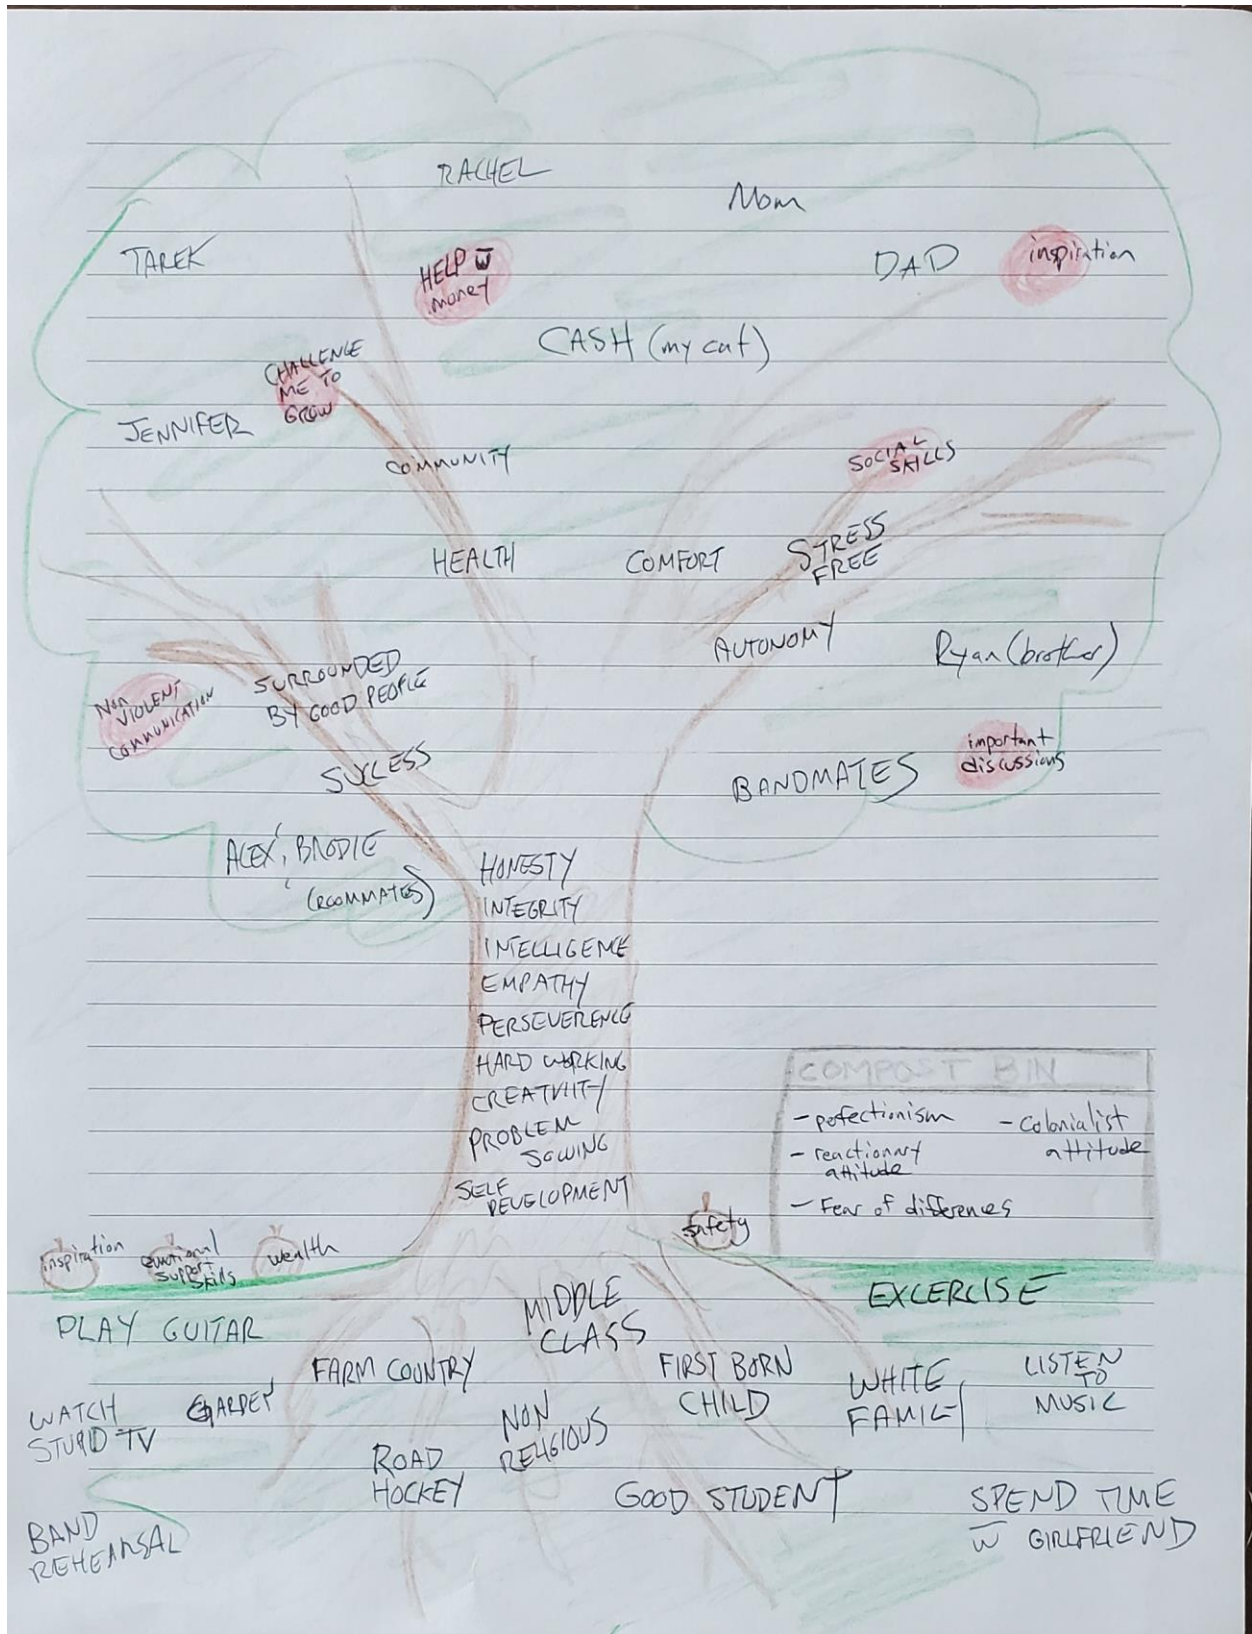 RACHEL
Mom
TAREK
HELP w̄
money
DAD
inspiration
CASH (my cat)
CHALLENGE
ME TO
GROW
JENNIFER
COMMUNITY
SOCIAL
SKILLS
HEALTH
COMFORT
STRESS
FREE
AUTONOMY
Ryan (brother)
SURROUNDED
BY GOOD PEOPLE
Non
VIOLENT
COMMUNICATION
SUCCESS
important
discussions
BANDMATES
ALEX, BRODIE
(ROOMMATES)
HONESTY
INTEGRITY
INTELLIGENCE
EMPATHY
PERSEVERENCE
HARD WORKING
CREATVIITY
PROBLEM
SOLVING
SELF
DEVELOPMENT
COMPOST BIN
- pefectionism
- reactionary
attitude
- Fear of differences
- colonialist
attitude
safety
inspiration
emotional
support
skills
wealth
EXCERCISE
PLAY GUITAR
MIDDLE
CLASS
FARM COUNTRY
FIRST BORN
CHILD
WHITE
FAMILY
LISTEN
TO
MUSIC
WATCH
STUPID TV
GARDEN
NON
RELIGIOUS
ROAD
HOCKEY
GOOD STUDENT
SPEND TIME
w̄ GIRLFRIEND
BAND
REHEARSAL